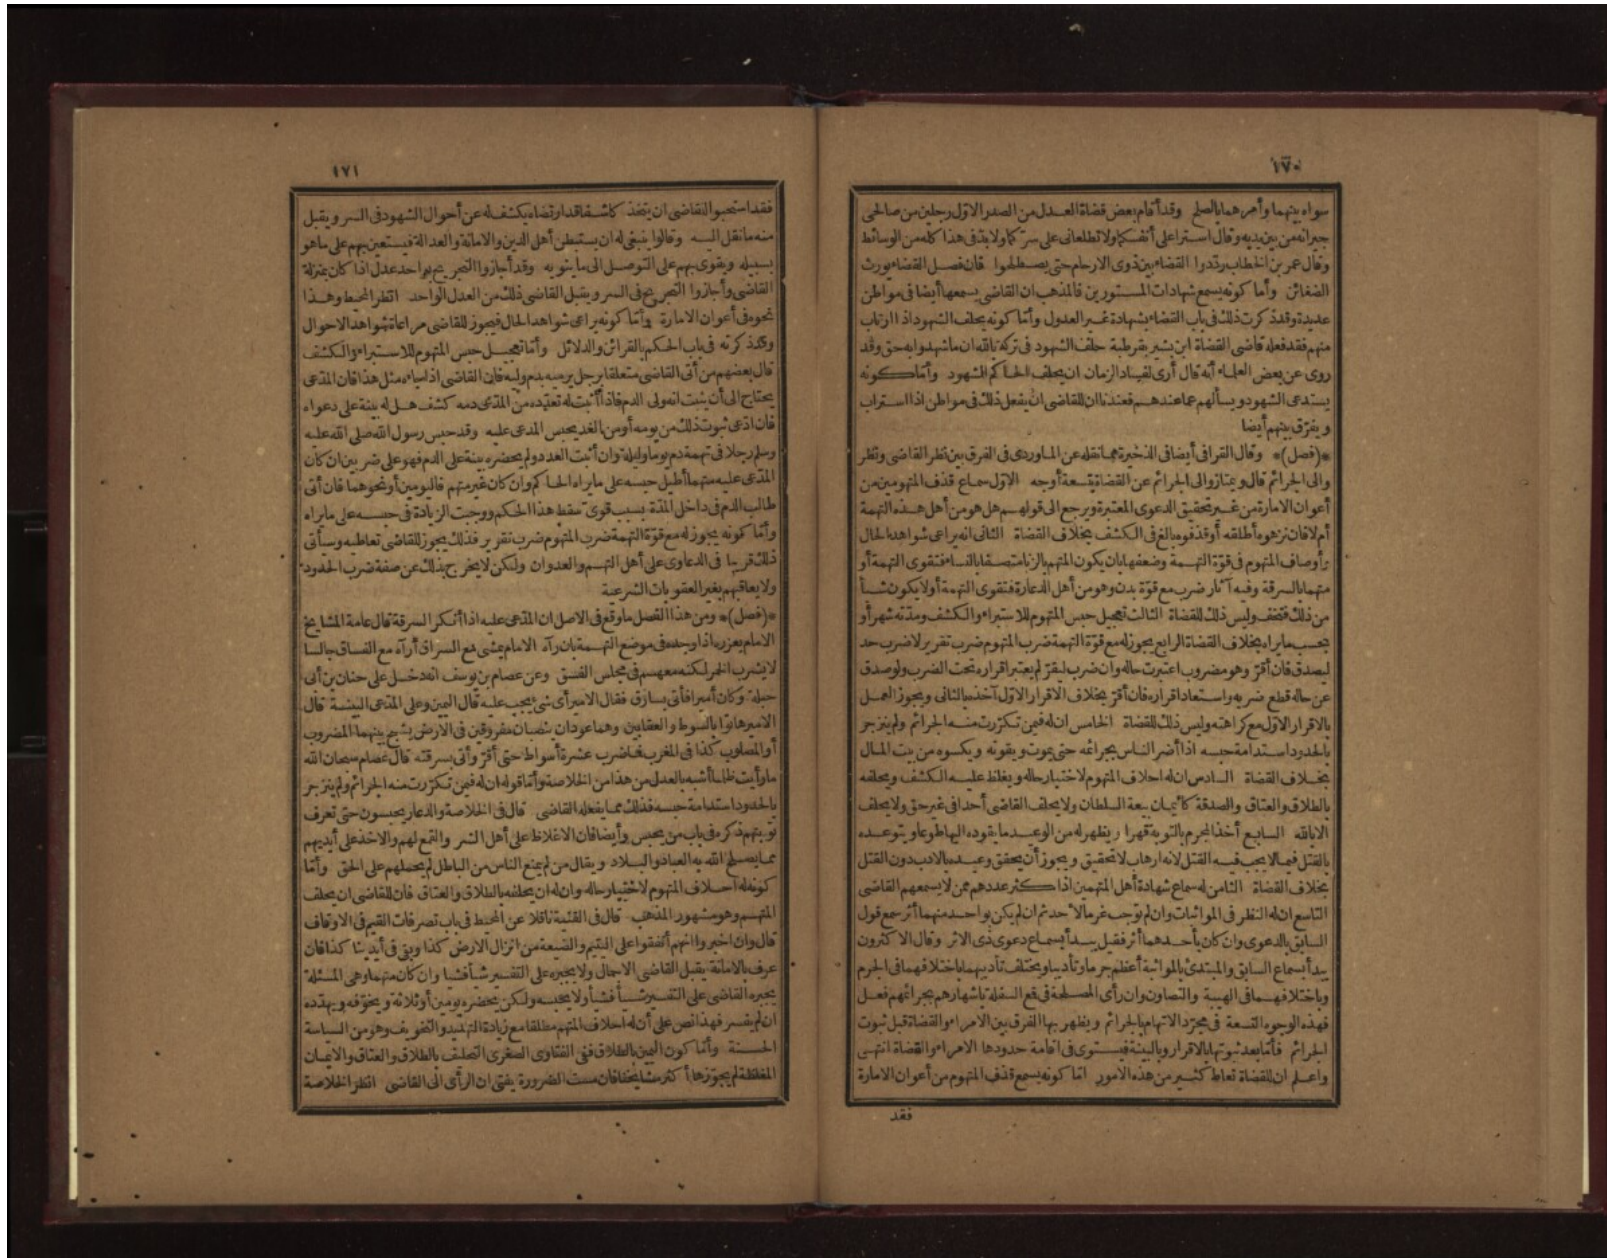 ١٧٠
سواء بينهما وأمرهما بالصلح وقد أقام بعض قضاة العدل من الصدر الاول رجلين من صالحى
جيرانه من بين يديه وقال استرا على أنفسكما ولا تطلعانى على سركما ولا بد فى هذا كله من الوسائط
وقال عمر بن الخطاب رددوا القضاء بين ذوى الارحام حتى يصطلحوا فان فصل القضاء يورث
الضغائن وأما كونه يسمع شهادات المستورين فالمذهب ان القاضى يسمعها أيضا فى مواطن
عديدة وقد ذكرت ذلك فى باب القضاء بشهادة غير العدول وأما كونه يحلف الشهود اذا ارتاب
منهم فقد فعله قاضى القضاة ابن بشير بقرطبة حلف الشهود فى تركة بالله ان ما شهدوا به حق وقد
روى عن بعض العلماء أنه قال أرى لفساد الزمان ان يحلف الحاكم الشهود وأما كونه
يستدعى الشهود ويسألهم عما عندهم فعندنا ان للقاضى ان يفعل ذلك فى مواطن اذا استراب
ويفرق بينهم أيضا
*(فصل)* وقال القرافى أيضا فى الذخيرة مما نقله عن الماوردى فى الفرق بين نظر القاضى ونظر
والى الجرائم قال ويمتاز والى الجرائم عن القضاة بتسعة أوجه الاول سماع قذف المتهومين من
أعوان الامارة من غير تحقيق الدعوى المعتبرة ويرجع الى قولهم هل هو من أهل هذه التهمة
أم لا فان نزهوه أطلقه أو قذفوه بالغ فى الكشف بخلاف القضاة الثانى انه يراعى شواهد الحال
وأوصاف المتهوم فى قوة التهمة وضعفها بان يكون المتهم بالزنا متصفا بالنساء فتقوى التهمة أو
متهما بالسرقة وفيه آثار ضرب مع قوة بدن وهو من أهل الدعارة فتقوى التهمة أو لا يكون شيأ
من ذلك فتخفف وليس ذلك للقضاة الثالث تعجيل حبس المتهوم للاستبراء والكشف ومدته شهر أو
بحسب ما يراه بخلاف القضاة الرابع يجوز له مع قوة التهمة ضرب المتهوم ضرب تقرير لا ضرب حد
ليصدق فان أقر وهو مضروب اعتبرت حاله وان ضرب ليقر لم يعتبر اقراره تحت الضرب ولو صدق
عن حاله قطع ضربه واستعاد اقراره فان أقر بخلاف الاقرار الاول آخذ بالثانى ويجوز العمل
بالاقرار الاول مع كراهته وليس ذلك للقضاة الخامس ان له فيمن تكررت منه الجرائم ولم ينزجر
بالحدود استدامة حبسه اذا أضر الناس بجرائمه حتى يموت ويقوته ويكسوه من بيت المال
بخلاف القضاة السادس ان له احلاف المتهوم لاختبار حاله ويغلظ عليه الكشف ويحلفه
بالطلاق والعتاق والصدقة كأيمان بيعة السلطان ولا يحلف القاضى أحدا فى غير حق ولا يحلف
الا بالله السابع أخذ المجرم بالتوبة قهرا ويظهر له من الوعيد ما يقوده اليها طوعا ويتوعده
بالقتل فيما لا يجب فيه القتل لانه ارهاب لا تحقيق ويجوز أن يحقق وعيده بالادب دون القتل
بخلاف القضاة الثامن له سماع شهادة أهل المتهمين اذا كثر عددهم ممن لا يسمعهم القاضى
التاسع ان له النظر فى المواثبات وان لم توجب غرما لاحد ثم ان لم يكن بواحد منهما أثر سمع قول
السابق بالدعوى وان كان بأحدهما أثر فقيل يبدأ بسماع دعوى ذى الاثر وقال الاكثرون
يبدأ بسماع السابق والمبتدئ بالمواثبة أعظم جرما وتأديبا ويختلف تأديبهما باختلافهما فى الجرم
وباختلافهما فى الهيبة والتصاون وان رأى المصلحة فى قمع السفلة باشهارهم بجرائمهم فعل
فهذه الوجوه التسعة فى مجرد الاتهام بالجرائم ويظهر بها الفرق بين الامراء والقضاة قبل ثبوت
الجرائم فأما بعد ثبوتها بالاقرار وبالبينة فيستوى فى اقامة حدودها الامراء والقضاة انتهى
واعلم ان للقضاة تعاطى كثير من هذه الامور اما كونه يسمع قذف المتهوم من أعوان الامارة
فقد
١٧١
فقد استحبوا للقاضى ان يتخذ كاشفا قد ارتضاه يكشف له عن أحوال الشهود فى السر ويقبل
منه ما نقل اليه وقالوا ينبغى له ان يستبطن أهل الدين والامانة والعدالة فيستعين بهم على ما هو
بسبيله ويقوى بهم على التوصل الى ما ينوبه وقد أجازوا التجريح بواحد عدل اذا كان بمنزلة
القاضى وأجازوا التجريح فى السر ويقبل القاضى ذلك من العدل الواحد انظر المحيط وهذا
نحوه فى أعوان الامارة وأما كونه يراعى شواهد الحال فيجوز للقاضى مراعاة شواهد الاحوال
وقد ذكرته فى باب الحكم بالقرائن والدلائل وأما تعجيل حبس المتهوم للاستبراء والكشف
قال بعضهم من أتى القاضى متعلقا برجل يرميه بدم وليه فان القاضى اذا جاءه مثل هذا فان المدعى
يحتاج الى أن يثبت انه ولى الدم فاذا أثبت له تعديه من المدعى دمه كشف هل له بينة على دعواه
فان ادعى ثبوت ذلك من يومه أو من الغد يحبس المدعى عليه وقد حبس رسول الله صلى الله عليه
وسلم رجلا فى تهمة دم يوما وليلة وان أثبت العدد ولم يحضره بينة على الدم فهو على ضربين ان كان
المدعى عليه متهما أطيل حبسه على ما يراه الحاكم وان كان غير متهم فاليومين أو نحوهما فان أتى
طالب الدم فى داخل المدة بسبب قوى سقط هذا الحكم ووجبت الزيادة فى حبسه على ما يراه
وأما كونه يجوز له مع قوة التهمة ضرب المتهوم ضرب تقرير فذلك يجوز للقاضى تعاطيه وسيأتى
ذلك قريبا فى الدعاوى على أهل التهم والعدوان ولكن لا يخرج بذلك عن صفة ضرب الحدود
ولا يعاقبهم بغير العقوبات الشرعية
*(فصل)* ومن هذا الفصل ما وقع فى الاصل ان المدعى عليه اذا أنكر السرقة قال عامة المشايخ
الامام يعزره اذا وجده فى موضع التهمة بان رآه الامام يمشى مع السراق أو رآه مع الفساق جالسا
لا يشرب الخمر لكنه معهم فى مجلس الفسق وعن عصام بن يوسف انه دخل على حنان بن أبى
جبلة وكان أميرا فأتى بسارق فقال الامير أى شئ يجب عليه قال اليمين وعلى المدعى البينة قال
الامير هاتوا بالسوط والعقابين وهما عودان ينصبان مغروقين فى الارض يشبح بينهما المضروب
أو المصلوب كذا فى المغرب فما ضرب عشرة أسواط حتى أقر وأتى بسرقته قال عصام سبحان الله
ما رأيت ظلما أشبه بالعدل من هذا من الخلاصة وأما قوله ان له فيمن تكررت منه الجرائم ولم ينزجر
بالحدود استدامة حبسه فذلك مما يفعله القاضى قال فى الخلاصة والدعار يحبسون حتى تعرف
توبتهم ذكره فى باب من يحبس وأيضا فان الاغلاظ على أهل الشر والقمع لهم والاخذ على أيديهم
مما يصلح الله به العباد والبلاد ويقال من لم يمنع الناس من الباطل لم يحملهم على الحق وأما
كونه له احلاف المتهوم لاختبار حاله وان له ان يحلفه بالطلاق والعتاق فان للقاضى ان يحلف
المتهم وهو مشهور المذهب قال فى القنية ناقلا عن المحيط فى باب تصرفات القيم فى الاوقاف
قال وان اخبروا انهم أنفقوا على اليتيم والضيعة من انزال الارض كذا وبقى فى أيدينا كذا فان
عرف بالامانة يقبل القاضى الاجمال ولا يجبره على التفسير شيأ فشيأ وان كان متهما وهى المسئلة
يجبره القاضى على التفسير شيأ فشيأ ولا يحبسه ولكن يحضره يومين أو ثلاثة ويخوفه ويهدده
ان لم يفسر فهذا نص على أن له احلاف المتهم مطلقا مع زيادة التهديد والتخويف وهو من السياسة
الحسنة وأما كون اليمين بالطلاق ففى الفتاوى الصغرى التحليف بالطلاق والعتاق والايمان
المغلظة لم يجوزها أكثر مشايخنا فان مست الضرورة يفتى ان الرأى الى القاضى انظر الخلاصة